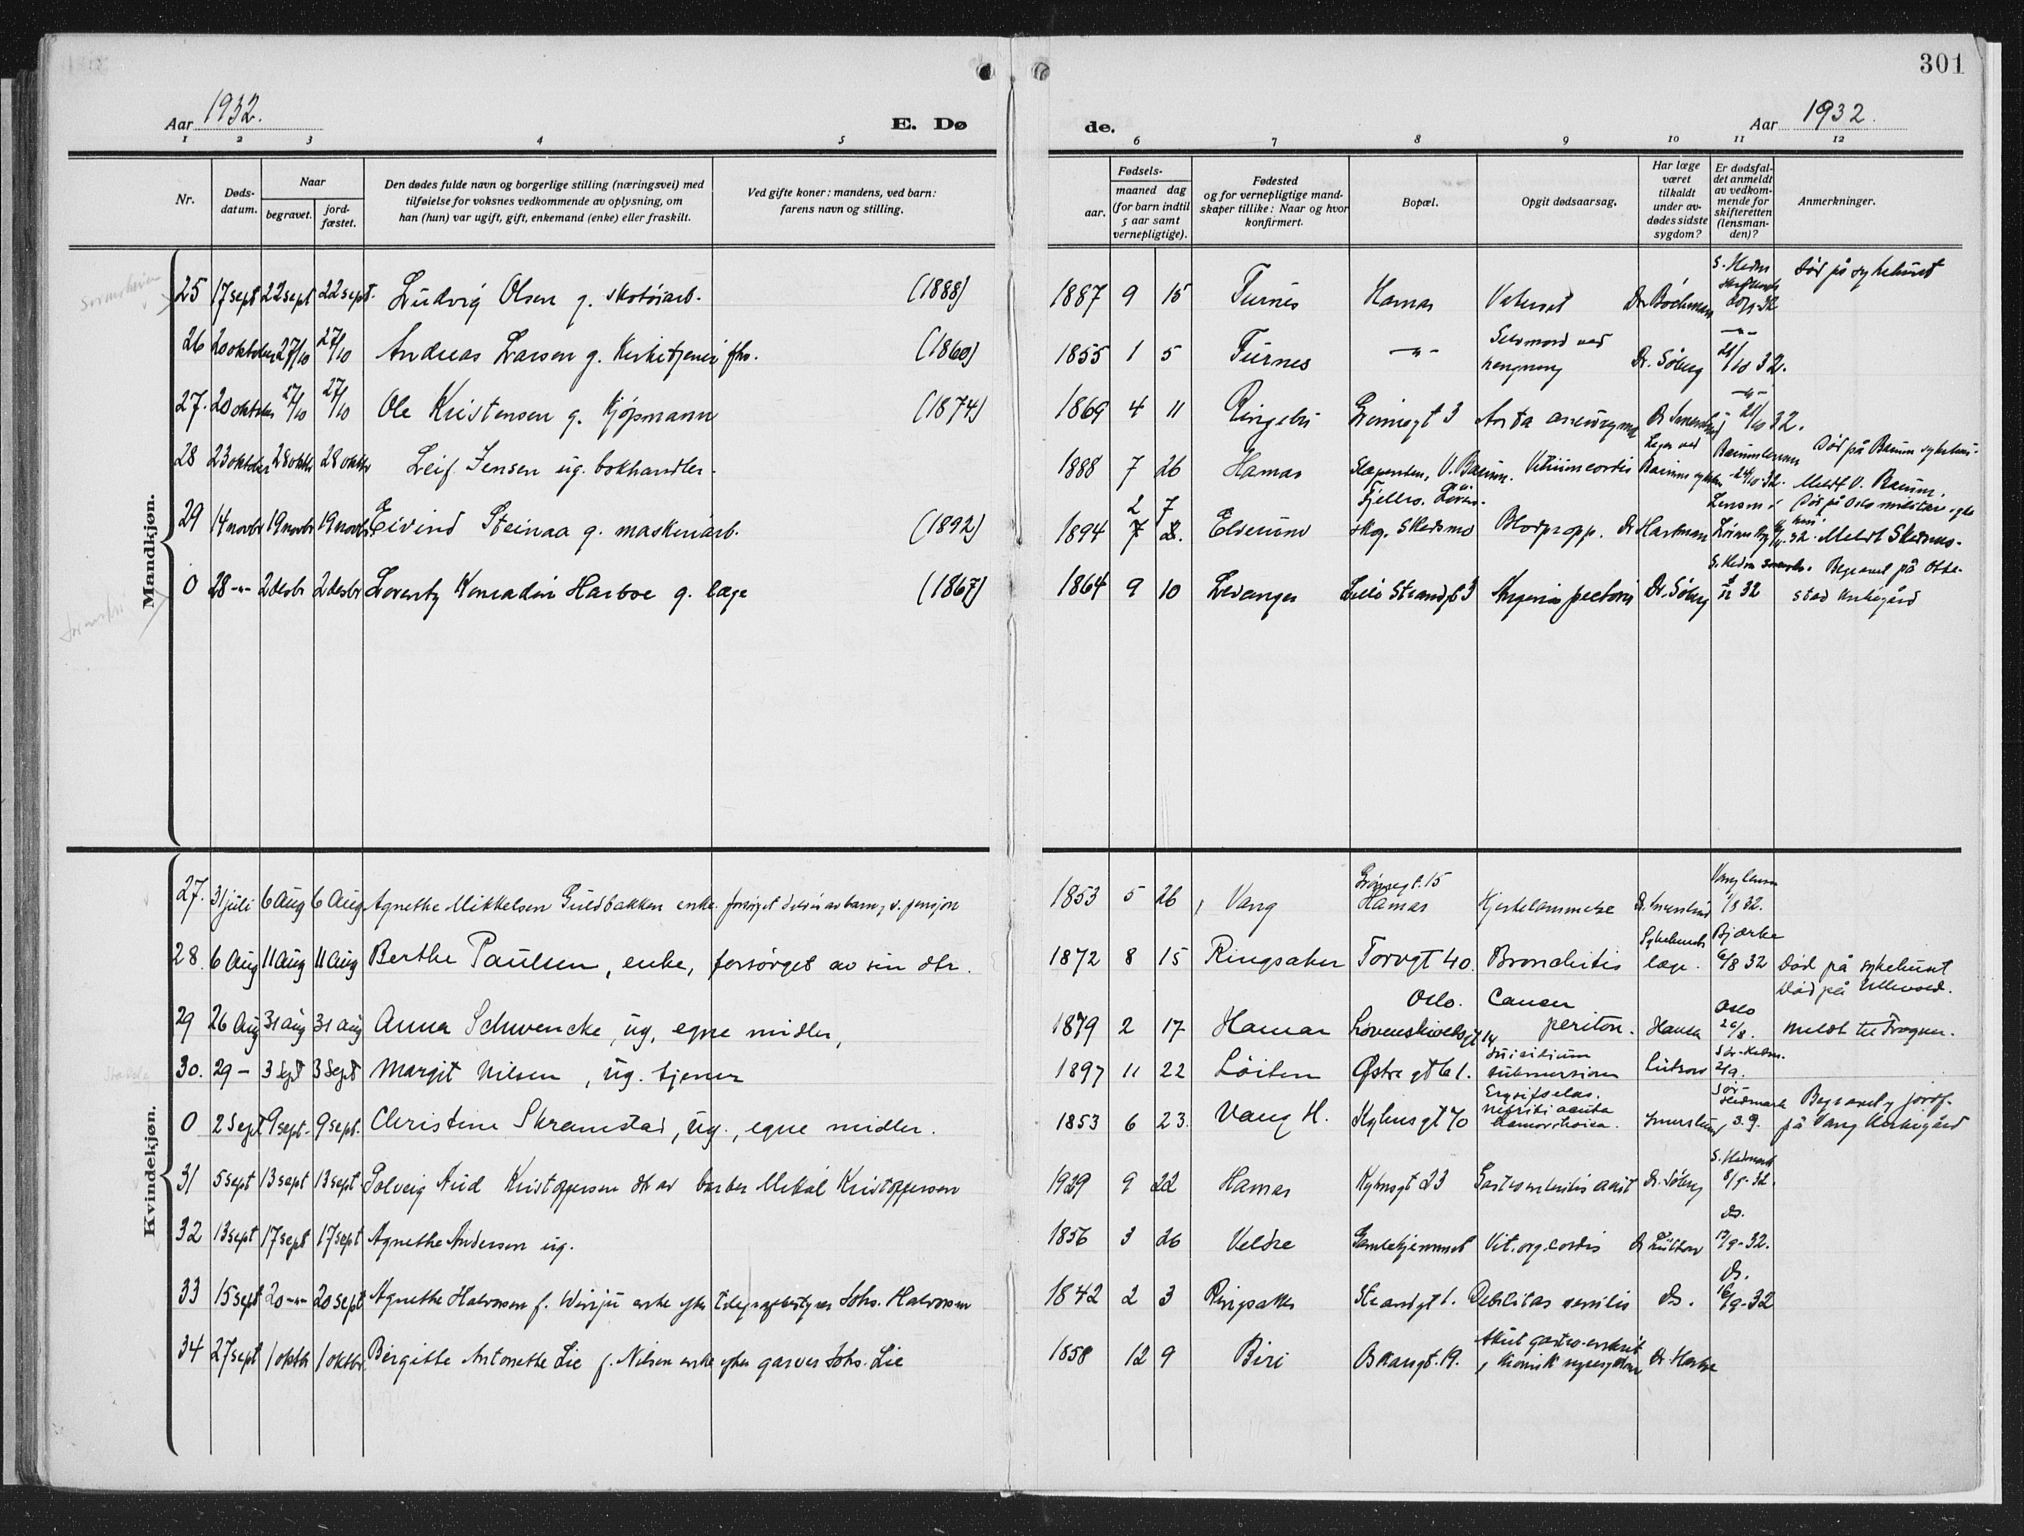 301
Aar 1932.
E. Dø
de.
Aar 1932.
1 2 3 4 5 6 7 8 9 10 11 12
Nr.
Døds-
datum.
Naar
begravet.
jord-
fæstet.
Den dødes fulde navn og borgerlige stilling (næringsvei) med
tilføielse for voksnes vedkommende av oplysning, om
han (hun) var ugift, gift, enkemand (enke) eller fraskilt.
Ved gifte koner: mandens, ved barn:
farens navn og stilling.
Fødsels-
aar.
maaned dag
(for barn indtil
5 aar samt
vernepligtige).
Fødested
og for vernepligtige mand-
skaper tillike: Naar og hvor
konfirmert.
Bopæl.
Opgit dødsaarsag.
Har læge
været
tilkaldt
under av-
dødes sidste
sygdom?
Er dødsfal-
det anmeldt
av vedkom-
mende for
skifteretten
(lensman-
den)?
Anmerkninger.
Mandkjøn.
25 17 sept 22 sept 22 sept. Ludvig Olsen g. skotøiarb. (1888) 1887 9 15 Furnes Hamar Dr. Bøchman Død på sykehuset
26 20 oktober 27/10 27/10 Andreas Larsen g. Kirketjener fhv. (1860) 1855 1 5 Furnes -"- Selvmord ved hengning Dr. Søberg -"- 21/10 32.
27. 20 oktober 27/10 27/10 Ole Kristensen g. Kjøpmann (1874) 1869 4 11 Ringebu Grønnegt 3 Aorta aneurysme Dr Smerslud -"- 21/10 32.
28 23 oktober 28 oktbr 28 oktbr Leif Jensen ug. bokhandler. 1888 7 26 Hamar Slependen, V. Bærum. Vitium cordis Læge ved Bærums sykehus 24/10-32. Død på Bærum sykehus. Meldt V. Bærum.
29 14 novbr 19 novbr 19 novbr Eivind Steinaa g. maskinarb. (1892) 1894 7 8. 2 7 Elverum skog. Skedsmo Blodpropp. Dr Hartman Lensm. i Død på Oslo militær syke hus. Meldt Skedsmo.
0 28 -"- 2 desbr 2 desbr Lorentz Konradin Harboe g. læge (1867) 1864 9 10 Levanger Lille Strandgt 3 Angina pectoris Dr. Søberg 32 Begravet på Otte- stad kirkegård
Kvindekjøn.
27. 31 juli 6 Aug 6 Aug Agnethe Mikkelsen Guldbakken enke forsørget delvis av barn, v. pensjon 1853 5 26 Vang Grønnegt. 15 Hamar Hjertelammelse Dr. Smerslud Vang lensm 1/8 32.
28. 6 Aug 11 Aug 11 Aug Berthe Paulsen, enke, forsørget av sin dtr. 1872 8 15 Ringsaker Torvgt 40. Bronchitis Sykehusets læge. Bjerke 6/8 32 Død på sykehuset
29 26 Aug 31 aug 31 aug Anna Schwencke, ug, egne midler, 1879 2 17 Hamar Oslo. Løvenskioldsgt 14 Cancer periton. Hansen Oslo 26/8. Død på Ullevaal. meldt til Frogner.
30. 29 - 3 Sept 3 Sept Margit Nilsen, ug. tjener 1897 11 22 Løiten Østregt 61. Suicidium submersion Lützow Sør-Hedm. 2/9.
0 2 Sept 9 sept. 9 sept. Christine Skramstad, ug., egne midler. 1853 6 23. Vang H. Skyhusgt 70 Erysipelas. nefritis acuta hæmorrhoica. Smerslud Sør- Hedmark 3.9. Begravet, jordf. på Vang kirkegård
31 5 sept 13 sept 13 sept Solveig Aud Kristoffersen dtr av barber Mikal Kristoffersen 1929 9 22 Hamar Kyhnsgt 23 Gastroenteritis acut Dr. Søberg S. Hedmark 8/9-32.
32 13 sept 17 sept 17 sept Agnethe Andersen ug. 1856 3 26 Veldre Gamlehjemmet Vit. org. cordis Dr Lützow ds. 17/9-32.
33 15 sept 20 -"- 20 sept Agnethe Halvorsen f. enke efter telegrafbestyrer Johs. Halvorsen 1842 2 3 Ringsaker Strandgt 1. Debilitas senilis ds. ds. 16/9-32
34 27 sept 1 oktbr 1 oktbr. Birgitte Antonette Lie f. Nilsen enke efter garver Johs. Lie 1858 12 9 Biri Oskarsgt. 19. Akut gastro-enterit, kronisk nyresygdom Dr Harboe